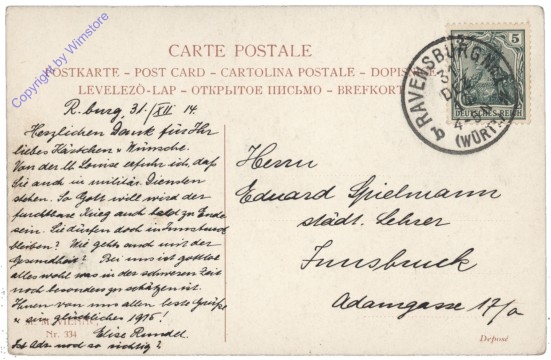 Copyright by Wimstore
CARTE POSTALE
POSTKARTE - POST CARD - CARTOLINA POSTALE - DOPIS
LEVELEZŐ-LAP - ОТКРЫТОЕ ПИСЬМО - BREFKORT
5
DEUTSCHES REICH
RAVENSBURG
31
DEZ
4-5 N
(WÜRTT.)
b
R.burg, 31./XII 14.
Herzlichen Dank für Ihr
liebes Kästchen u Wünsche.
Von der M. Louise erfuhr ich, daß
Sie auch in militär. Diensten
stehen. So Gott will wird der
furchtbare Krieg auch bald zu Ende
sein. Sie dürfen doch in Innsbruck
bleiben? Wie gehts auch mit der
Gesundheit? Bei uns ist gottlob
alles wohl was in der schweren Zeit
noch besonders zu schätzen ist.
Ihnen von uns allen beste Grüße
u ein glückliches 1915!
Elise
Ist Adr. noch so richtig?
Nr. 334
Herrn
Eduard Spielmann
städt. Lehrer
Innsbruck
Adamgasse 17/a
Deposé